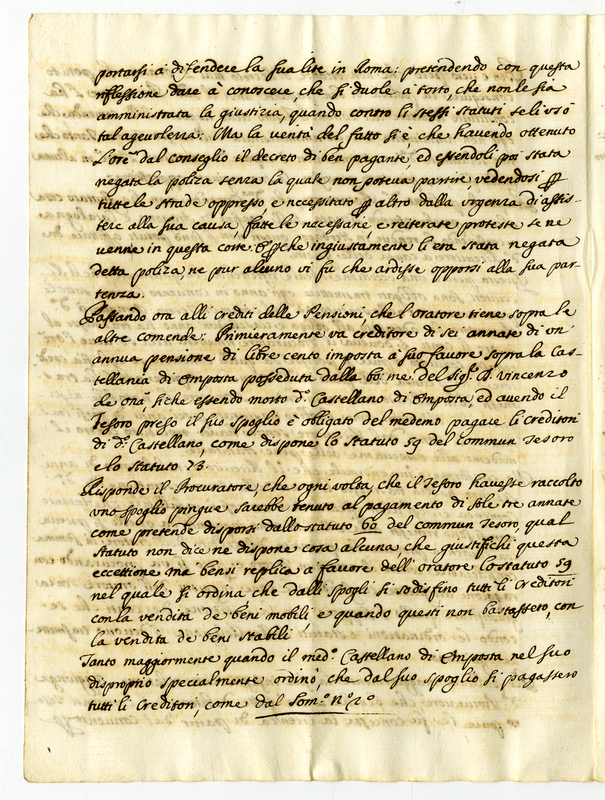 portarsi à difendere la sua lite in Roma: pretendendo con questa
riflessione dare à conoscere, che si duole a torto, che non le sia
amministrata la giustizia, quando contro li stessi statuti se li usò
tal agevolezza: Ma la verità del fatto si è, che havendo ottenuto
l'ore dal conseglio il decreto di ben pagante, ed essendoli poi stata
negata la poliza senza la quale non poteva partire, vedendosi p
tutte le strade oppresso e necessitato p altro dalla urgenza di assis-
tere alla sua causa, fatte le necessarie, e reiterate proteste se ne
venne in questa corte. E pche ingiustamente li era stata negata
detta poliza, ne pur alcuno vi fu che ardisse opporsi alla sua par-
tenza.
Passando ora alli crediti delle Pensioni, che l'oratore tiene sopra le
altre comende: Primieramente va creditore di sei annate di un'
annua pensione di libre cento imposta à suo favore sopra la Cas-
tellania di Emposta posseduta dalla bo: me: del Sigr. D. Vincenzo
de Oña, si che essendo morto do. Castellano di Emposta, ed avendo il
Tesoro preso il suo spoglio è obligato del medemo pagare li creditori
di do. Castellano, come dispone lo Statuto 59 del Commun Tesoro
e lo Statuto 73.
Risponde il Procuratore, che ogni volta, che il Tesoro havesse raccolto
uno spoglio pingue sarebbe tenuto al pagamento di sole tre annate
come pretende disporsi dallo statuto 60 del commun Tesoro, qual
statuto non dice ne dispone cosa alcuna, che giustifichi questa
eccettione ma bensi replica a favore dell'oratore lo statuto 59
nel quale si ordina che dalli spogli si sodisfino tutti li Creditori
con la vendita de beni mobili, e quando questi non bastassero, con
la vendita de beni stabili
Tanto maggiormente quando il medo. Castellano di Emposta nel suo
disproprio specialmente ordinò, che dal suo spoglio si pagassero
tutti li Creditori, come dal Somo. No. 2o